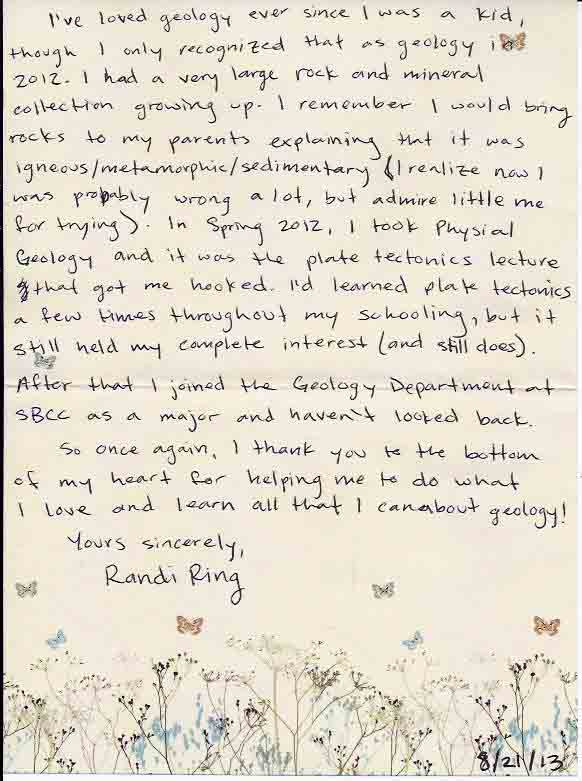 I've loved geology ever since I was a kid,
though I only recognized that as geology in
2012. I had a very large rock and mineral
collection growing up. I remember I would bring
rocks to my parents explaining that it was
igneous/metamorphic/sedimentary (I realize now I
was probably wrong a lot, but admire little me
for trying). In Spring 2012, I took Physial
Geology and it was the plate tectonics lecture
that got me hooked. I'd learned plate tectonics
a few times throughout my schooling, but it
still held my complete interest (and still does).
After that I joined the Geology Department at
SBCC as a major and haven't looked back.
So once again, I thank you to the bottom
of my heart for helping me to do what
I love and learn all that I can about geology!
Yours sincerely,
Randi Ring
8/21/13